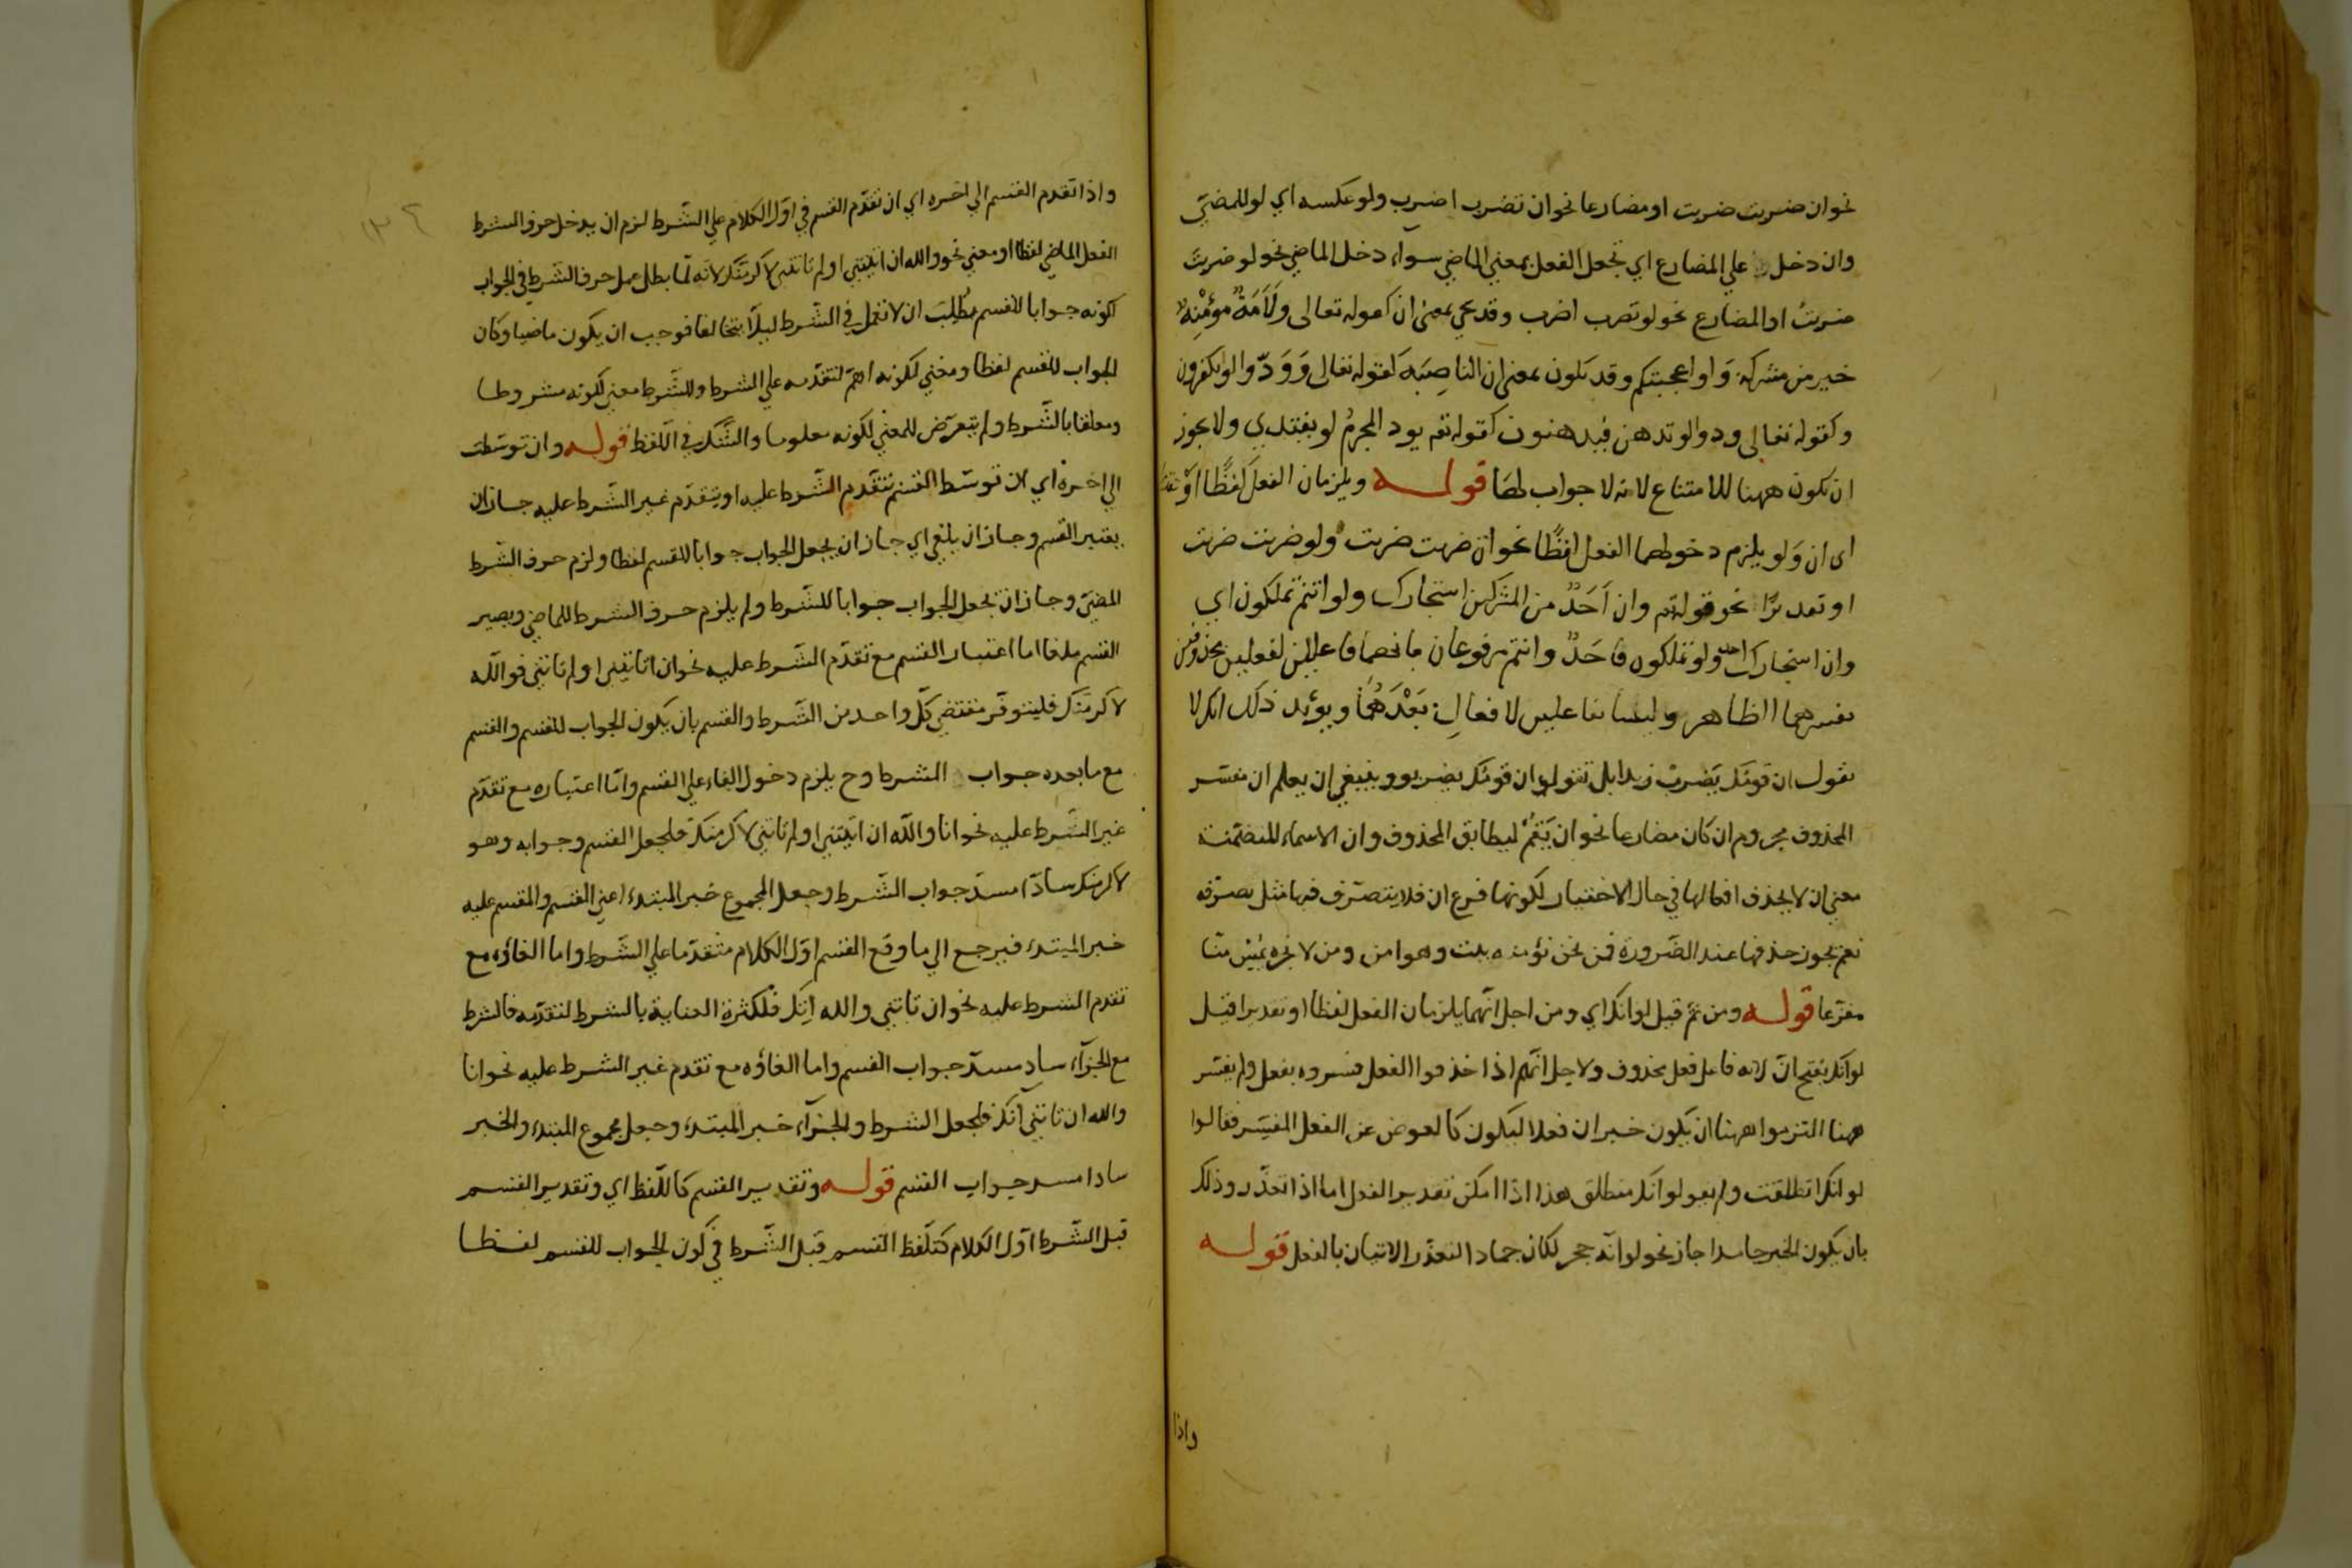 نحو ان ضربت ضربت او مضارعا نحو ان تضرب اضرب ولو عكسه اي لو للمضيّ
وان دخل علي المضارع اي تجعل الفعل بمعني الماضي سواء دخل الماضي نحو لو ضربتَ
ضربتُ او المضارع نحو لو تضرب اضرب وقد يجي بمعنى ان كقوله تعالى وَلَأَمَةٌ مؤمِنَةٌ
خير من مشركة وَلو اعجبتكم وقد تكون بمعنى ان الناصِبَه كقوله تعالى وَوَدّوا لو تكفرون
وكقوله تعالى ودوا لو تدهن فيدهنون كقوله تعم يود المجرمُ لو يفتدي ولا يجوز
ان تكون ههنا للامتناع لانه لا جواب لها قوله ويلزمان الفعلَ لفظًا اوْ
اى ان وَلو يلزم دخولهما الفعل لفظًا نحو ان ضربت ضربت ولو ضربت ضربت
او تقديرًا نحو قوله تم وان اَحَدٌ من المشركين استجارك ولو انتم تملكون اي
وان استجارك احد ولو تملكون فاَحَدٌ وانتم مرفوعان بانهما فاعلين لفعلين محذوفين
يفسرهما الظاهر وليسا بفاعلين لافعالٍ بَعْدَهُمَا ويؤيد ذلك انك لا
تقول ان قومَك يَضربْ زيدا بل تقول ان قومك يضربوه وينبغي ان يعلم ان مفسّر
المحذوف مجزوم ان كان مضارعا نحو ان يَقُمْ ليطابق المحذوف وان الاسماء المتضمّنة
معني ان لا يحذف افعالها في حال الاختيار لكونها فرع ان فلا يتصرّف فيها مثل تصرّفه
نعم يجوز حذفها عند الضّرورة فمن نحن نؤمنه يبت وهو امن ومن لا نجره يمس منّا
مفزعا قوله ومن ثمّ قيل لو انك اي ومن اجل انّهما يلزمان الفعل لفظا او تقديرا قيل
لو انّك بفتح انّ لانه فاعل فعل محذوف ولاجل انّهم اذا حذفوا الفعل فسروه بفعل ولم يفسّر
ههنا التزموا ههنا ان يكون خبر ان فعلا ليكون كالعوض عن الفعل المفسّر فقالوا
لو انك انطلقت ولم يقولوا انك منطلق هذا اذا امكن تقدير الفعل اما اذا تعذّر وذلك
بان يكون الخبر جامدا جاز نحو لو انّه حجر لكان جمادا لتعذّر الاتيان بالفعل قوله
واذا
واذا تقدم القسم الي اخره اي ان تقدّم القسم في اوّل الكلام علي الشّرط لزم ان يدخل حرف الشرط
الفعل الماضي لفظا او معني نحو والله ان اتيتني او لم تاتني لاكرمنّك لانّه لمّا بطل عمل حرف الشّرط في الجواب
لكونه جوابا للقسم طُلِبَ ان لا تعمل في الشّرط ليلّا يتخالفا فوجب ان يكون ماضيا وكان
الجواب للقسم لفظا ومعني لكونه اهمّ لتقدّمه علي الشرط وللشّرط معني لكونه مشروطا
ومعلقا بالشّرط ولم يتعرّض للمعني لكونه معلوما والتنكير في اللّفظ قوله وان توسّطت
الي اخره اي ان توسّط القسم بتقدّم الشّرط عليه او بتقدّم غير الشّرط عليه جاز ان
يعتبر القسم وجاز ان يلغي اي جاز ان يجعل الجواب جوابا للقسم لفظا ولزم حرف الشّرط
المضيّ وجاز ان تجعل الجواب جوابا للشّرط ولم يلزم حرف الشرط للماضي ويصير
القسم ملغا اما اعتبار القسم مع تقدّم الشّرط عليه نحو ان اتاتيني او لم تاتني فو اللّه
لاكرمنّك فليتوفّر مقتضي كلّ واحد من الشّرط والقسم بان يكون الجواب للقسم والقسم
مع ما بعده جواب الشرط وح يلزم دخول الفاء علي القسم وامّا اعتباره مع تقدّم
غير الشّرط عليه نحو انا واللّه ان اتيتني او لم تاتني لاكرمنّك فلجعل القسم وجوابه وهو
لاكرمنك سادّا مسدّ جواب الشّرط وجعل المجموع خبر المبتدء اعني القسم والمقسم عليه
خبر المبتدء فيرجع الي ما وقع القسم اوّل الكلام متقدّما علي الشّرط واما الغاؤه مع
تقدم الشرط عليه نحو ان تاتني والله اتِك فلكثرة العناية بالشرط لتقدّمه فالشرط
مع الجزآء سادِ مسدّ جواب القسم واما الغاؤه مع تقدم غير الشرط عليه نحو انا
والله ان تاتني آتك فلجعل الشرط والجزآء خبر المبتدء وجعل مجموع المبتدء والخبر
سادا مسد جواب القسم قوله وتقدير القسم كاللّفظ اي وتقدير القسم
قبل الشّرط اوّل الكلام كتلّفظ القسم قبل الشّرط في كون الجواب للقسم لفظا